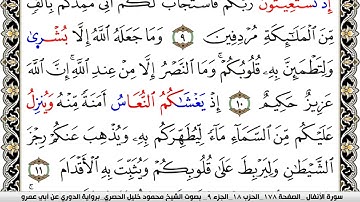 إِذْ تَسْتَغِيثُونَ رَبَّكُمْ فَٱسْتَجَابَ لَكُمْ أَنِّى مُمِدُّكُم بِأَلْفٍ
مِّنَ ٱلْمَلَـٰٓئِكَةِ مُرْدِفِينَ ٩ وَمَا جَعَلَهُ ٱللَّهُ إِلَّا بُشْرَىٰ
وَلِتَطْمَئِنَّ بِهِۦ قُلُوبُكُمْ وَمَا ٱلنَّصْرُ إِلَّا مِنْ عِندِ ٱللَّهِ إِنَّ ٱللَّهَ
عَزِيزٌ حَكِيمٌ ١٠ إِذْ يَغْشَىٰكُمُ ٱلنُّعَاسُ أَمَنَةً مِّنْهُ وَيُنزِلُ
عَلَيْكُم مِّنَ ٱلسَّمَآءِ مَآءً لِّيُطَهِّرَكُم بِهِۦ وَيُذْهِبَ عَنكُمْ رِجْزَ
ٱلشَّيْطَـٰنِ وَلِيَرْبِطَ عَلَىٰ قُلُوبِكُمْ وَيُثَبِّتَ بِهِ ٱلْأَقْدَامَ ١١
سورة الأنفال _ الصفحة ١٧٨ _ الحزب ١٨ _ الجزء ٩ _ بصوت الشيخ محمود خليل الحصري _ برواية الدوري عن أبي عمرو